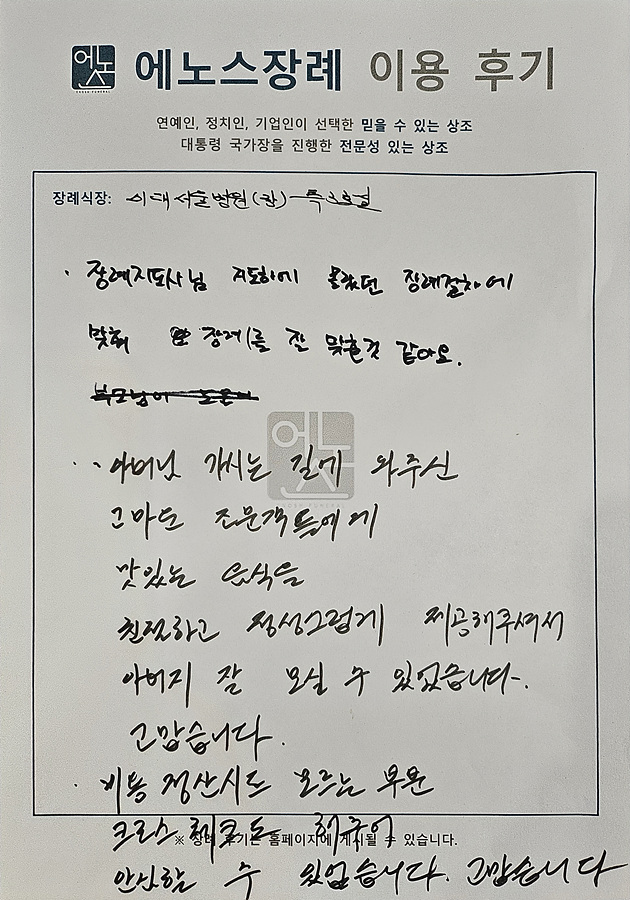 에노스
에노스장례 이용 후기
연예인, 정치인, 기업인이 선택한 믿을 수 있는 상조
대통령 국가장을 진행한 전문성 있는 상조
장례식장: 시대서울병원(장)
· 장례지도사님 지도하에 몰랐던 장례절차에
맞춰 장례를 잘 맞춘것 같아요.
에노스
·· 아버님 가시는 길에 와주신
고마운 조문객들에게
맛있는 음식을
친절하고 정성그럽게 제공해주셔서
아버지 잘 모실 수 있었습니다.
고맙습니다.
· 비용 정산시도 모르는 부분
크로스 체크도 해주어
※ 장례 후기는 홈페이지에 게시될 수 있습니다.
안심할 수 있었습니다. 고맙습니다